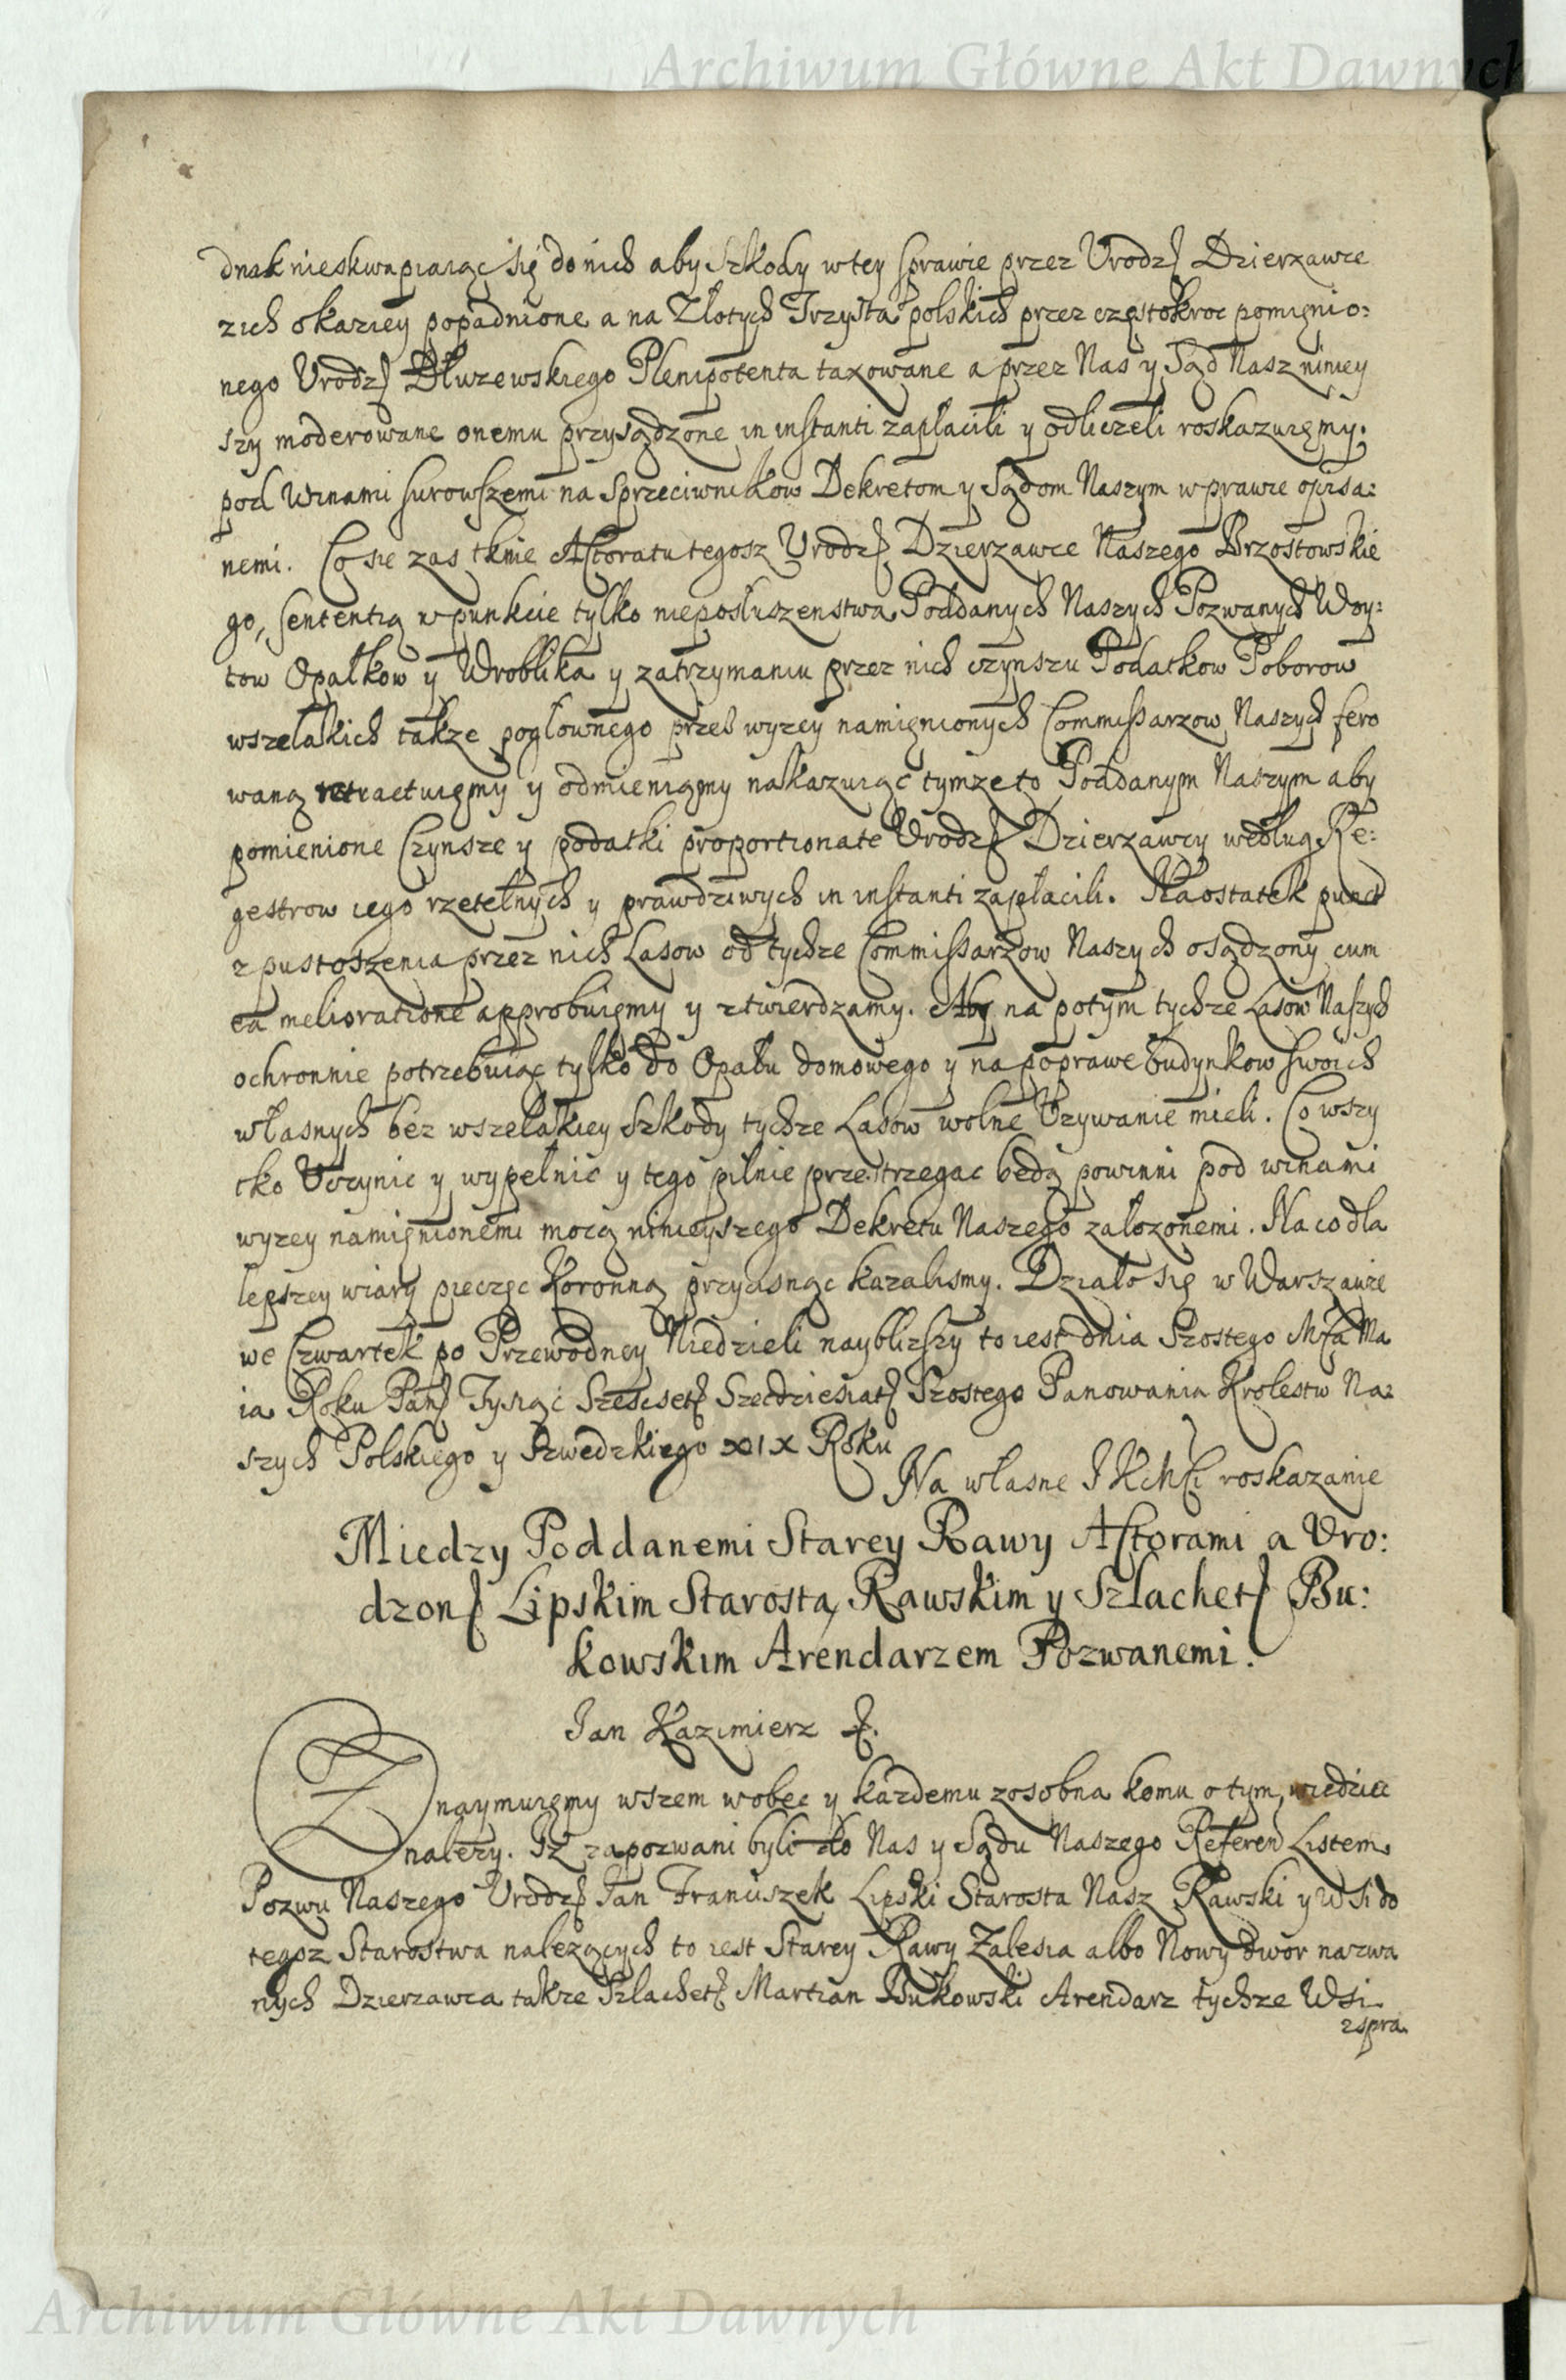 Archiwum Główne Akt Dawnych
dnak nieskwapiaiąc się do nich aby Szkody w tey sprawie przez Urodz Dzierzawce
z ich okaziey popadnione a na Złotych Trzysta polskich przez częstokroc pomięnio:
nego Urodz Dłuzewskiego Plenipotenta taxowane a przez Nas y Sąd Nasz niniey
szy moderowane onemu przysądzone in instanti zapłacili y odliczeli roskazuięmy.
pod Winami surowszemi na Sprzeciwnikow Dekretom y Sądom Naszym w prawie opisa:
nemi. Co sie zas tknie Actoratu tegosz Urodz Dzierzawce Naszego Brzostowskie
go, sententią w punkcie tylko nieposłuszenstwa Poddanych Naszych Pozwanych Woy:
tow Opałkow y Wroblika y zatrzymaniu przez nich czynszu Podatkow Poborow
wszelakich takze pogłownego przes wyzey namięnionych Commissarzow Naszych fero
waną retractuięmy y odmieniąmy nakazuiąc tymze to Poddanym Naszym aby
pomienione Czynsze y podatki proportionate Urodz Dzierzawcy według Re:
gestrow iego rzetelnych y prawdziwych in instanti zapłacili. Naostatek punct
z pustoszenia przez nich Lasow od tychze Commissarzow Naszych osądzony cum
ea melioratione approbuięmy y ztwierdzamy. Aby na potym tychze Lasow Naszych
ochronnie potrzebuiąc tylko do Opału domowego y na poprawe budynkow swoich
własnych bez wszelakiey Szkody tychze Lasow wolne Uzywanie mieli. Co wszy
tko Uczynic y wypełnic y tego pilnie przestrzegac będą powinni pod winami
wyzey namięnionemi mocą ninieyszego Dekretu Naszego załozonemi. Na co dla
lepszey wiary pieczęc Koronną przycisnąc kazalismy. Działo się w Warszawie
we Czwartek po Przewodney Niedzieli naybliszy to iest dnia Szostego Msca Ma
ia Roku Pans Tysiąc Szescset Szecdziesiat Szostego Panowania Krolestw Na:
szych Polskiego y Szwedzkiego XIX Roku
Na własne I K Mci roskazanie
Miedzy Poddanemi Starey Rawy Actorami a Uro:
dzon Lipskim Starostą Rawskim y Szlachet Bu:
kowskim Arendarzem Pozwanemi.
Jan Kazimierz
Znaymuięmy wszem wobec y kazdemu zosobna komu o tym wiedziec
nalezy. Iz zapozwani byli do Nas y Sądu Naszego Referen Listem
Pozwu Naszego Urodz Jan Franciszek Lipski Starosta Nasz Rawski y Wsi do
tegosz Starostwa nalezących to iest Starey Rawy Zalesia albo Nowy dwor nazwa
nych Dzierzawca takze Szlachet Martian Bukowski Arendarz tychze Wsi
z spra
Archiwum Główne Akt Dawnych